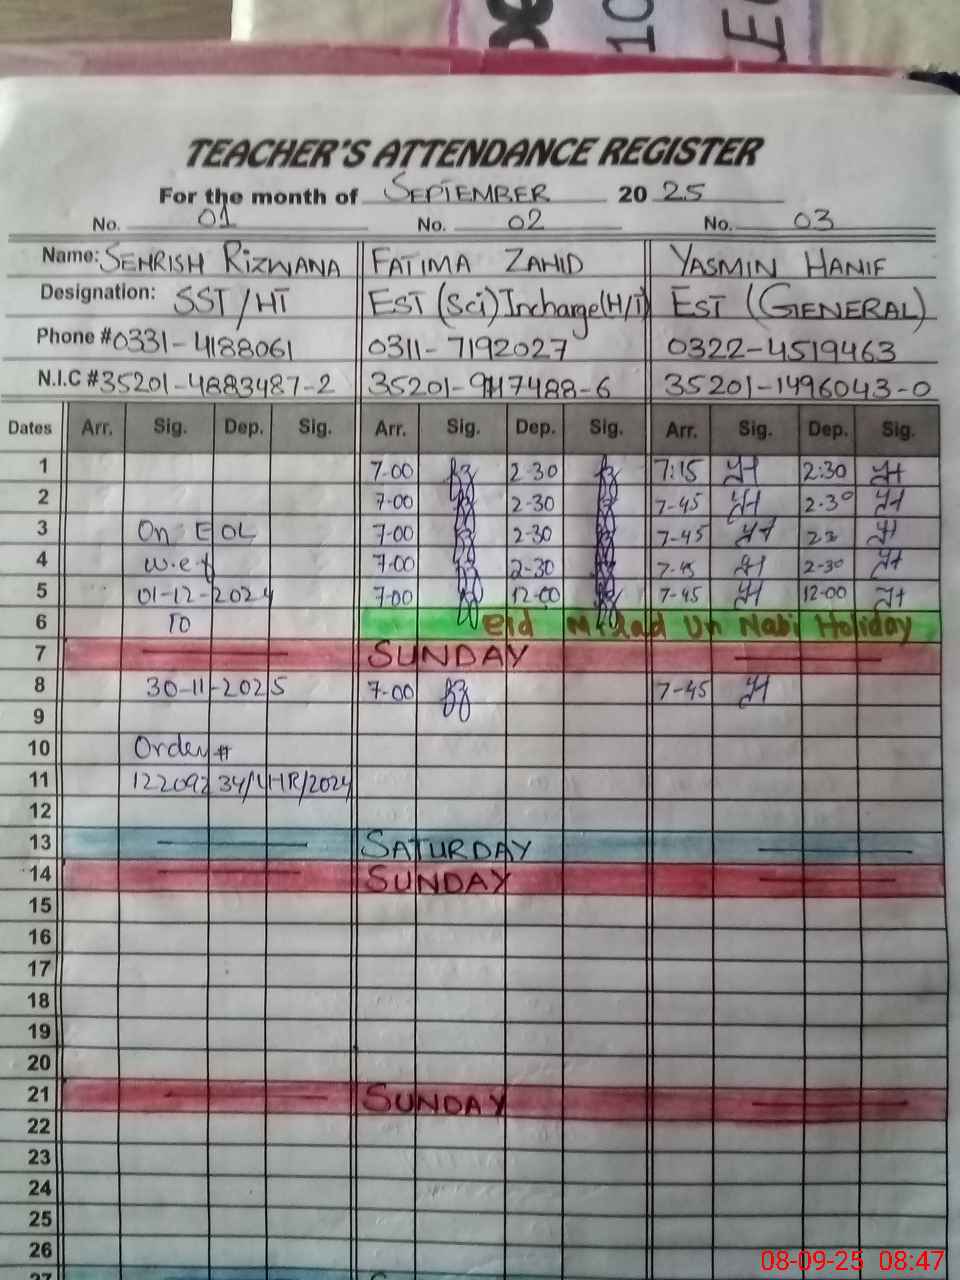 TEACHER'S ATTENDANCE REGISTER
For the month of SEPTEMBER 2025
No. 01 No. 02 No. 03
Name: SEHRISH RIZWANA FATIMA ZAHID YASMIN HANIF
Designation: SST/HT EST (Sci) Incharge(H/T) EST (GENERAL)
Phone #0331-4188061 0311-7192027 0322-4519463
N.I.C #35201-4883487-2 35201-9417488-6 35201-1496043-0
Dates Arr. Sig. Dep. Sig. Arr. Sig. Dep. Sig. Arr. Sig. Dep. Sig.
1 7-00 2-30 7:15 2:30
2 7-00 2-30 7-45 2-30
3 On EOL 7-00 2-30 7-45 2-3
4 w.e.f 7-00 2-30 7-45 2-30
5 01-12-2024 7-00 12-00 7-45 12-00
6 TO Eid Milad Un Nabi Holiday
7 SUNDAY
8 30-11-2025 7-00 7-45
9
10 Order #
11 122092 34/LHR/2024
12
13 SATURDAY
14 SUNDAY
15
16
17
18
19
20
21 SUNDAY
22
23
24
25
26
27
08-09-25 08:47